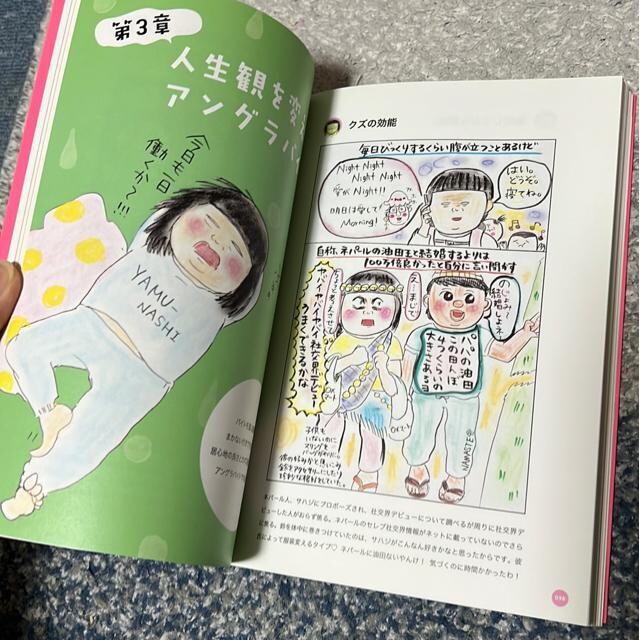 第3章
人生観を変
アングラバ
今日も一日
働くか〜!!!
YAMU-
NASHI
アングラバ
クズの効能
毎日びっくりするくらい腹が立つことあるけど
Night Night
Night Night
Night!!
明日は愛して
Morning!
はい。
どうぞ。
寝てね。
自称、ネパールの油田王と結婚するよりは
100万倍良かったと自分に言い聞かす
ヤバイヤバイヤバイ社交界デビュー
うまくできるかな
え…まじで
結婚しよネ
パパの油田
この田んぼ
4つくらいの
大きさあるヨ
子供も
いないのに
スリングを
バッグがわりに。
NAMASTE
ネパール人、サハジにプロポーズされ、社交界デビューについて調べるが周りに社交界デ
ビューした人がおらず焦る。ネパールのセレブ社交界情報がネットに載っていないのでさら
に焦る。鈴を体中に巻きつけていたのは、サハジがこんなん好きかなと思ったからです。彼
氏によって服装変えるタイプ♡ ネパールに油田ないやんけ！ 気づくのに時間かかったわ！